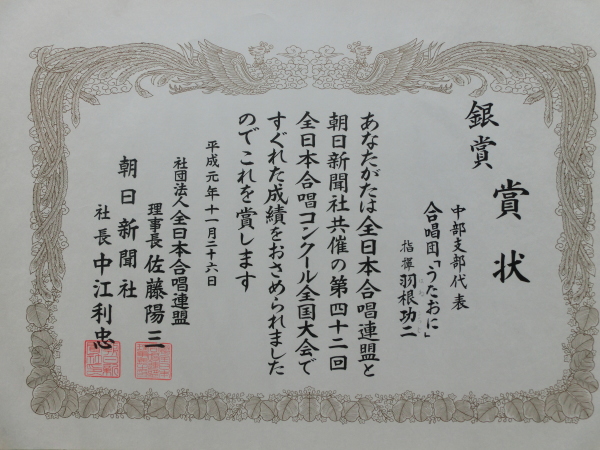 銀賞
賞状
中部支部代表
合唱団「うたおに」
指揮 羽根功二
あなたがたは全日本合唱連盟と
朝日新聞社共催の第四十二回
全日本合唱コンクール全国大会で
すぐれた成績をおさめられました
のでこれを賞します
平成元年十一月二十六日
社団法人全日本合唱連盟
理事長 佐藤陽三
朝日新聞社
社長 中江利忠